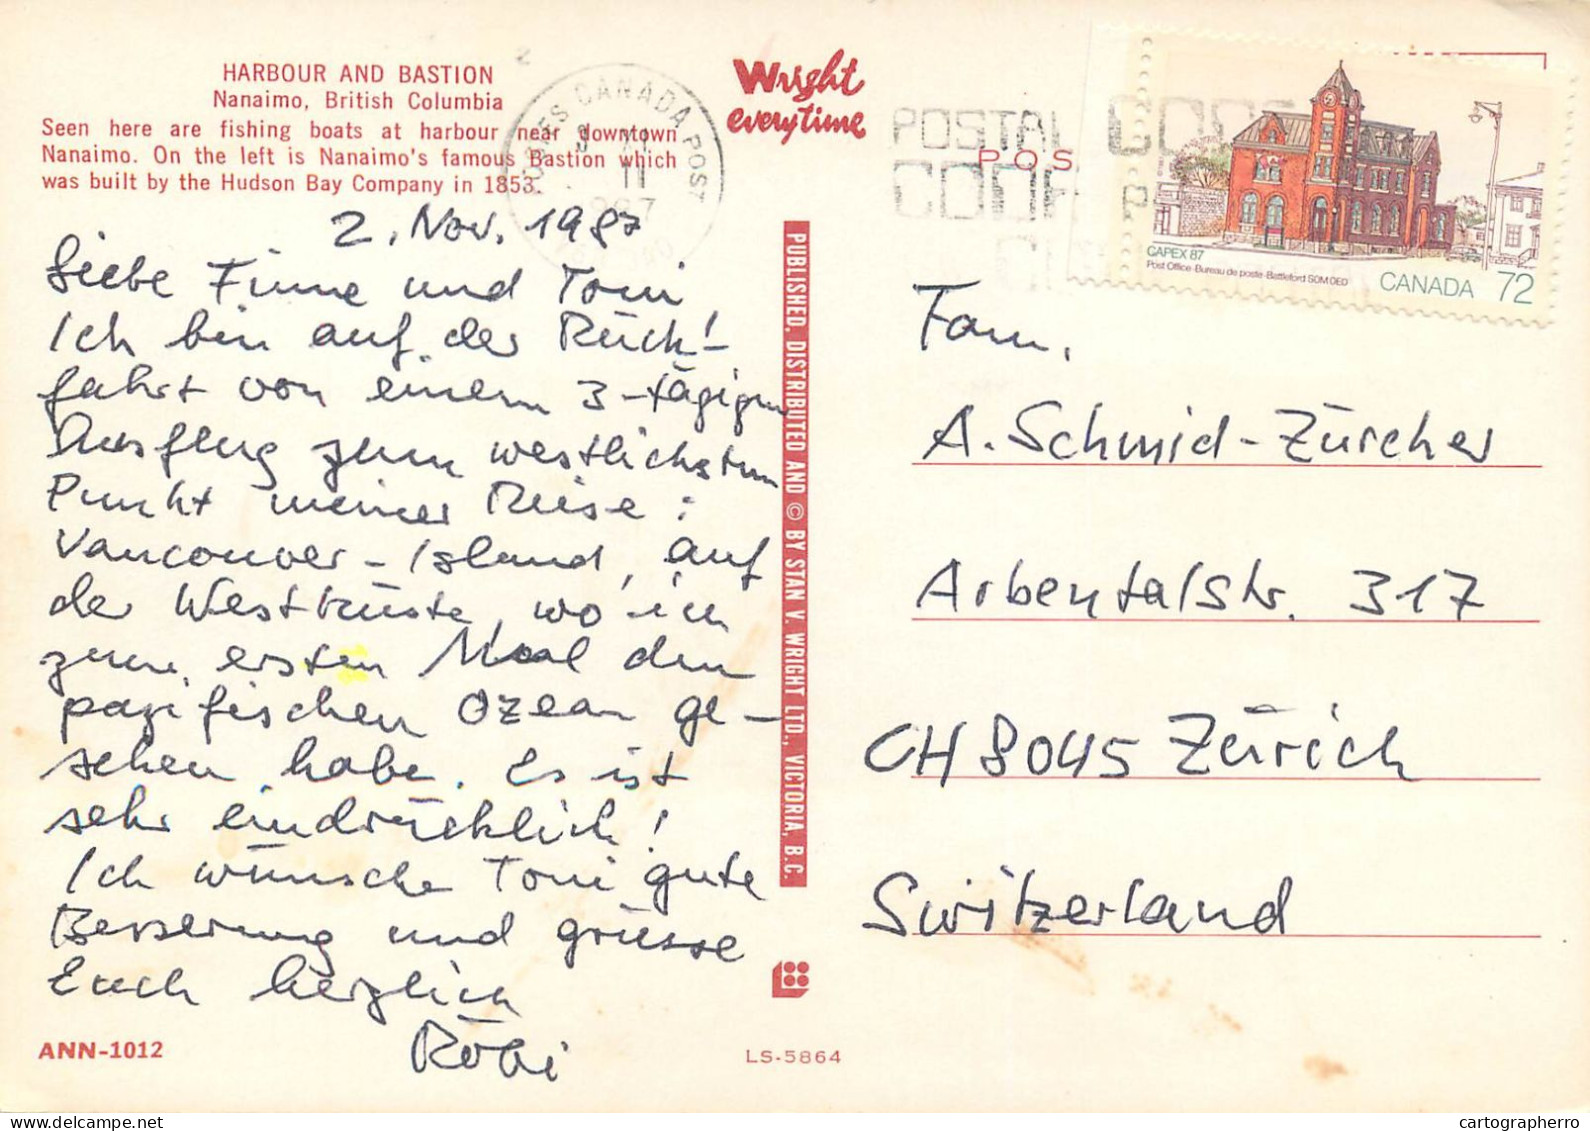 HARBOUR AND BASTION
Nanaimo, British Columbia
Seen here are fishing boats at harbour near downtown
Nanaimo. On the left is Nanaimo's famous Bastion which
was built by the Hudson Bay Company in 1853.
2. Nov. 1987
Liebe Finne und Toni
Ich bin auf der Rück-
fahrt von einem 3-tägigen
Ausflug zum westlichsten
Punkt meiner Reise:
Vancouver-Island, auf
der Westküste, wo ich
zum ersten Mal den
pazifischen Ozean ge-
sehen habe. Es ist
sehr eindrücklich!
Ich wünsche Toni gute
Besserung und grüsse
Euch herzlich
Röbi
ANN-1012
Wright
everytime
PUBLISHED, DISTRIBUTED AND © BY STAN V. WRIGHT LTD., VICTORIA, B.C.
LS-5864
CANADA POST
POSTAL
CODE
POS
CAPEX 87
Post Office·Bureau de poste·Battleford S0M 0E0
CANADA 72
Fam.
A. Schmid-Zürcher
Arbentalstr. 317
CH 8045 Zürich
Switzerland
cartographerro